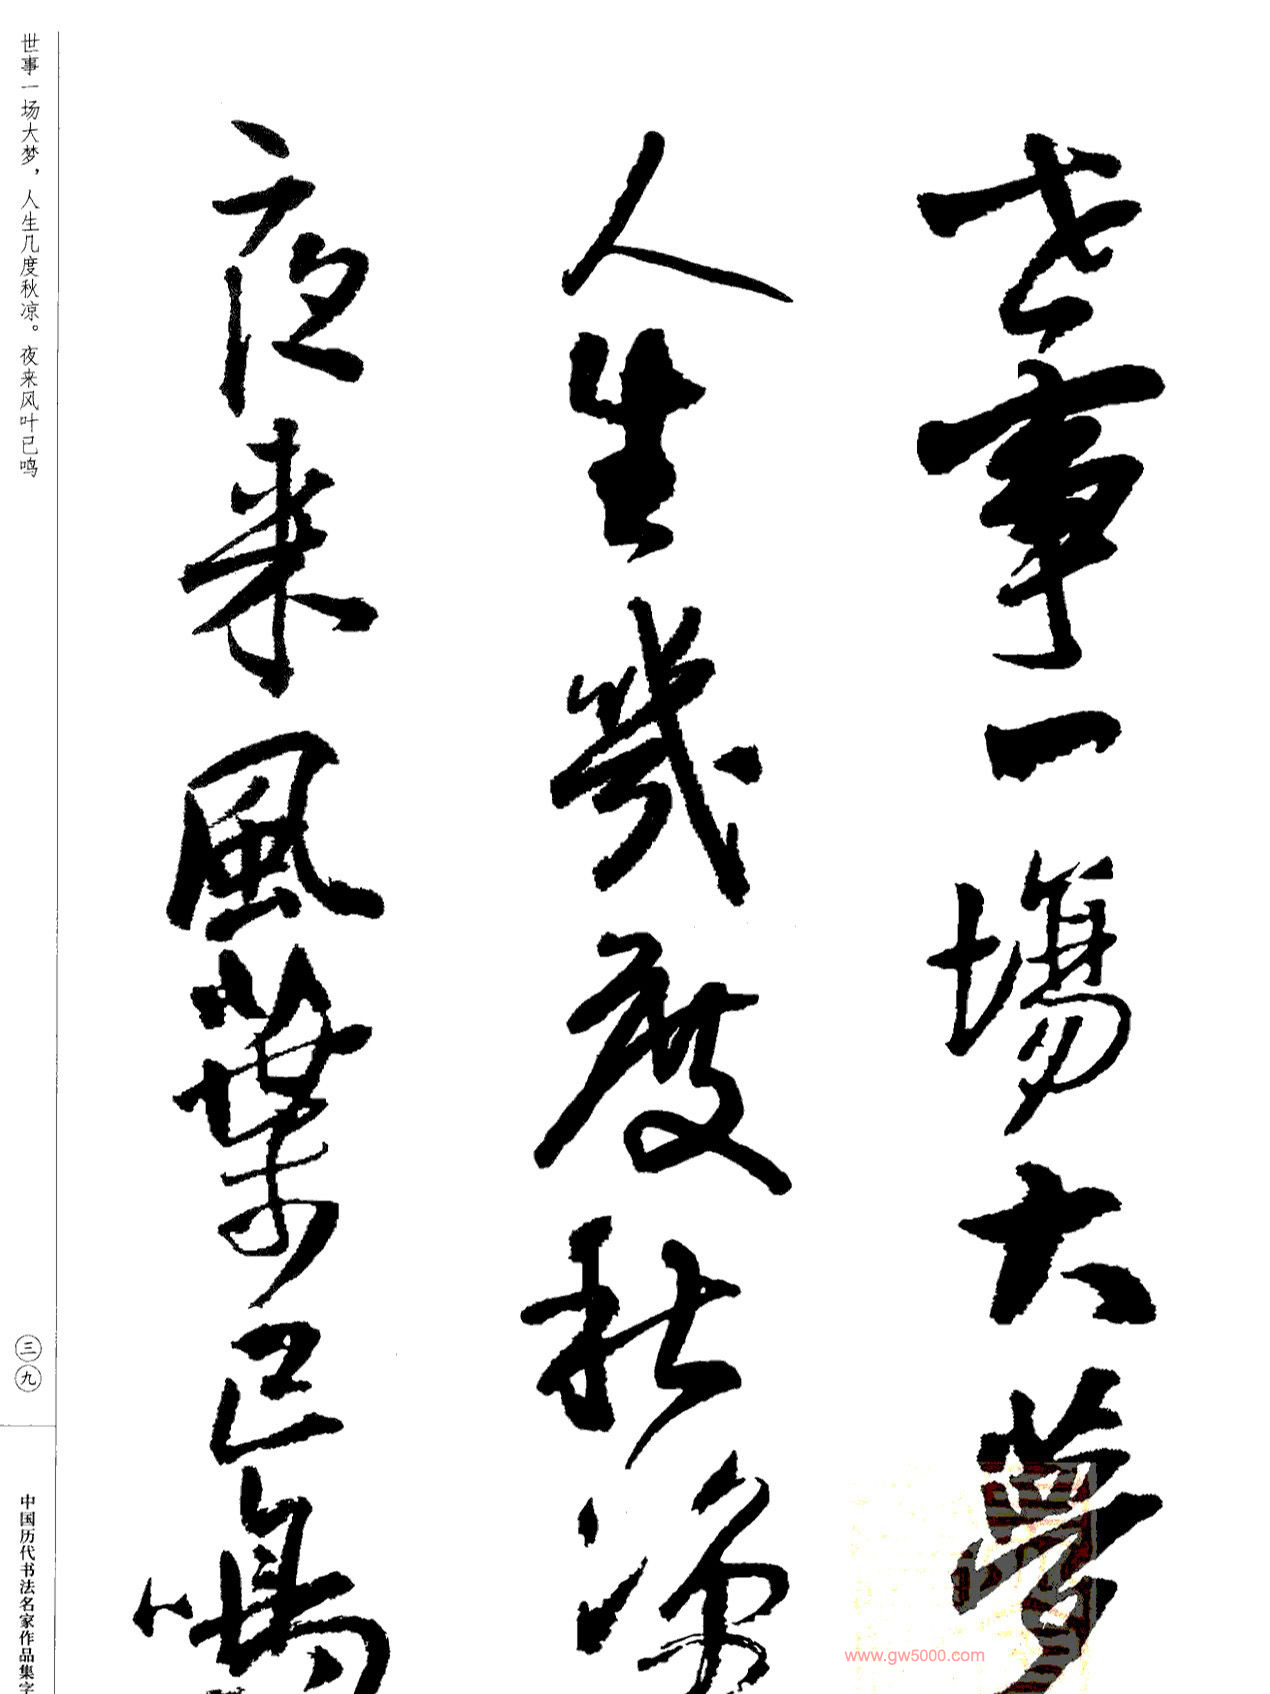 世事一場大夢
人生幾度秋涼
夜来風葉已鳴
世事一场大梦，人生几度秋凉。夜来风叶已鸣
三九
中国历代书法名家作品集字
www.gw5000.com